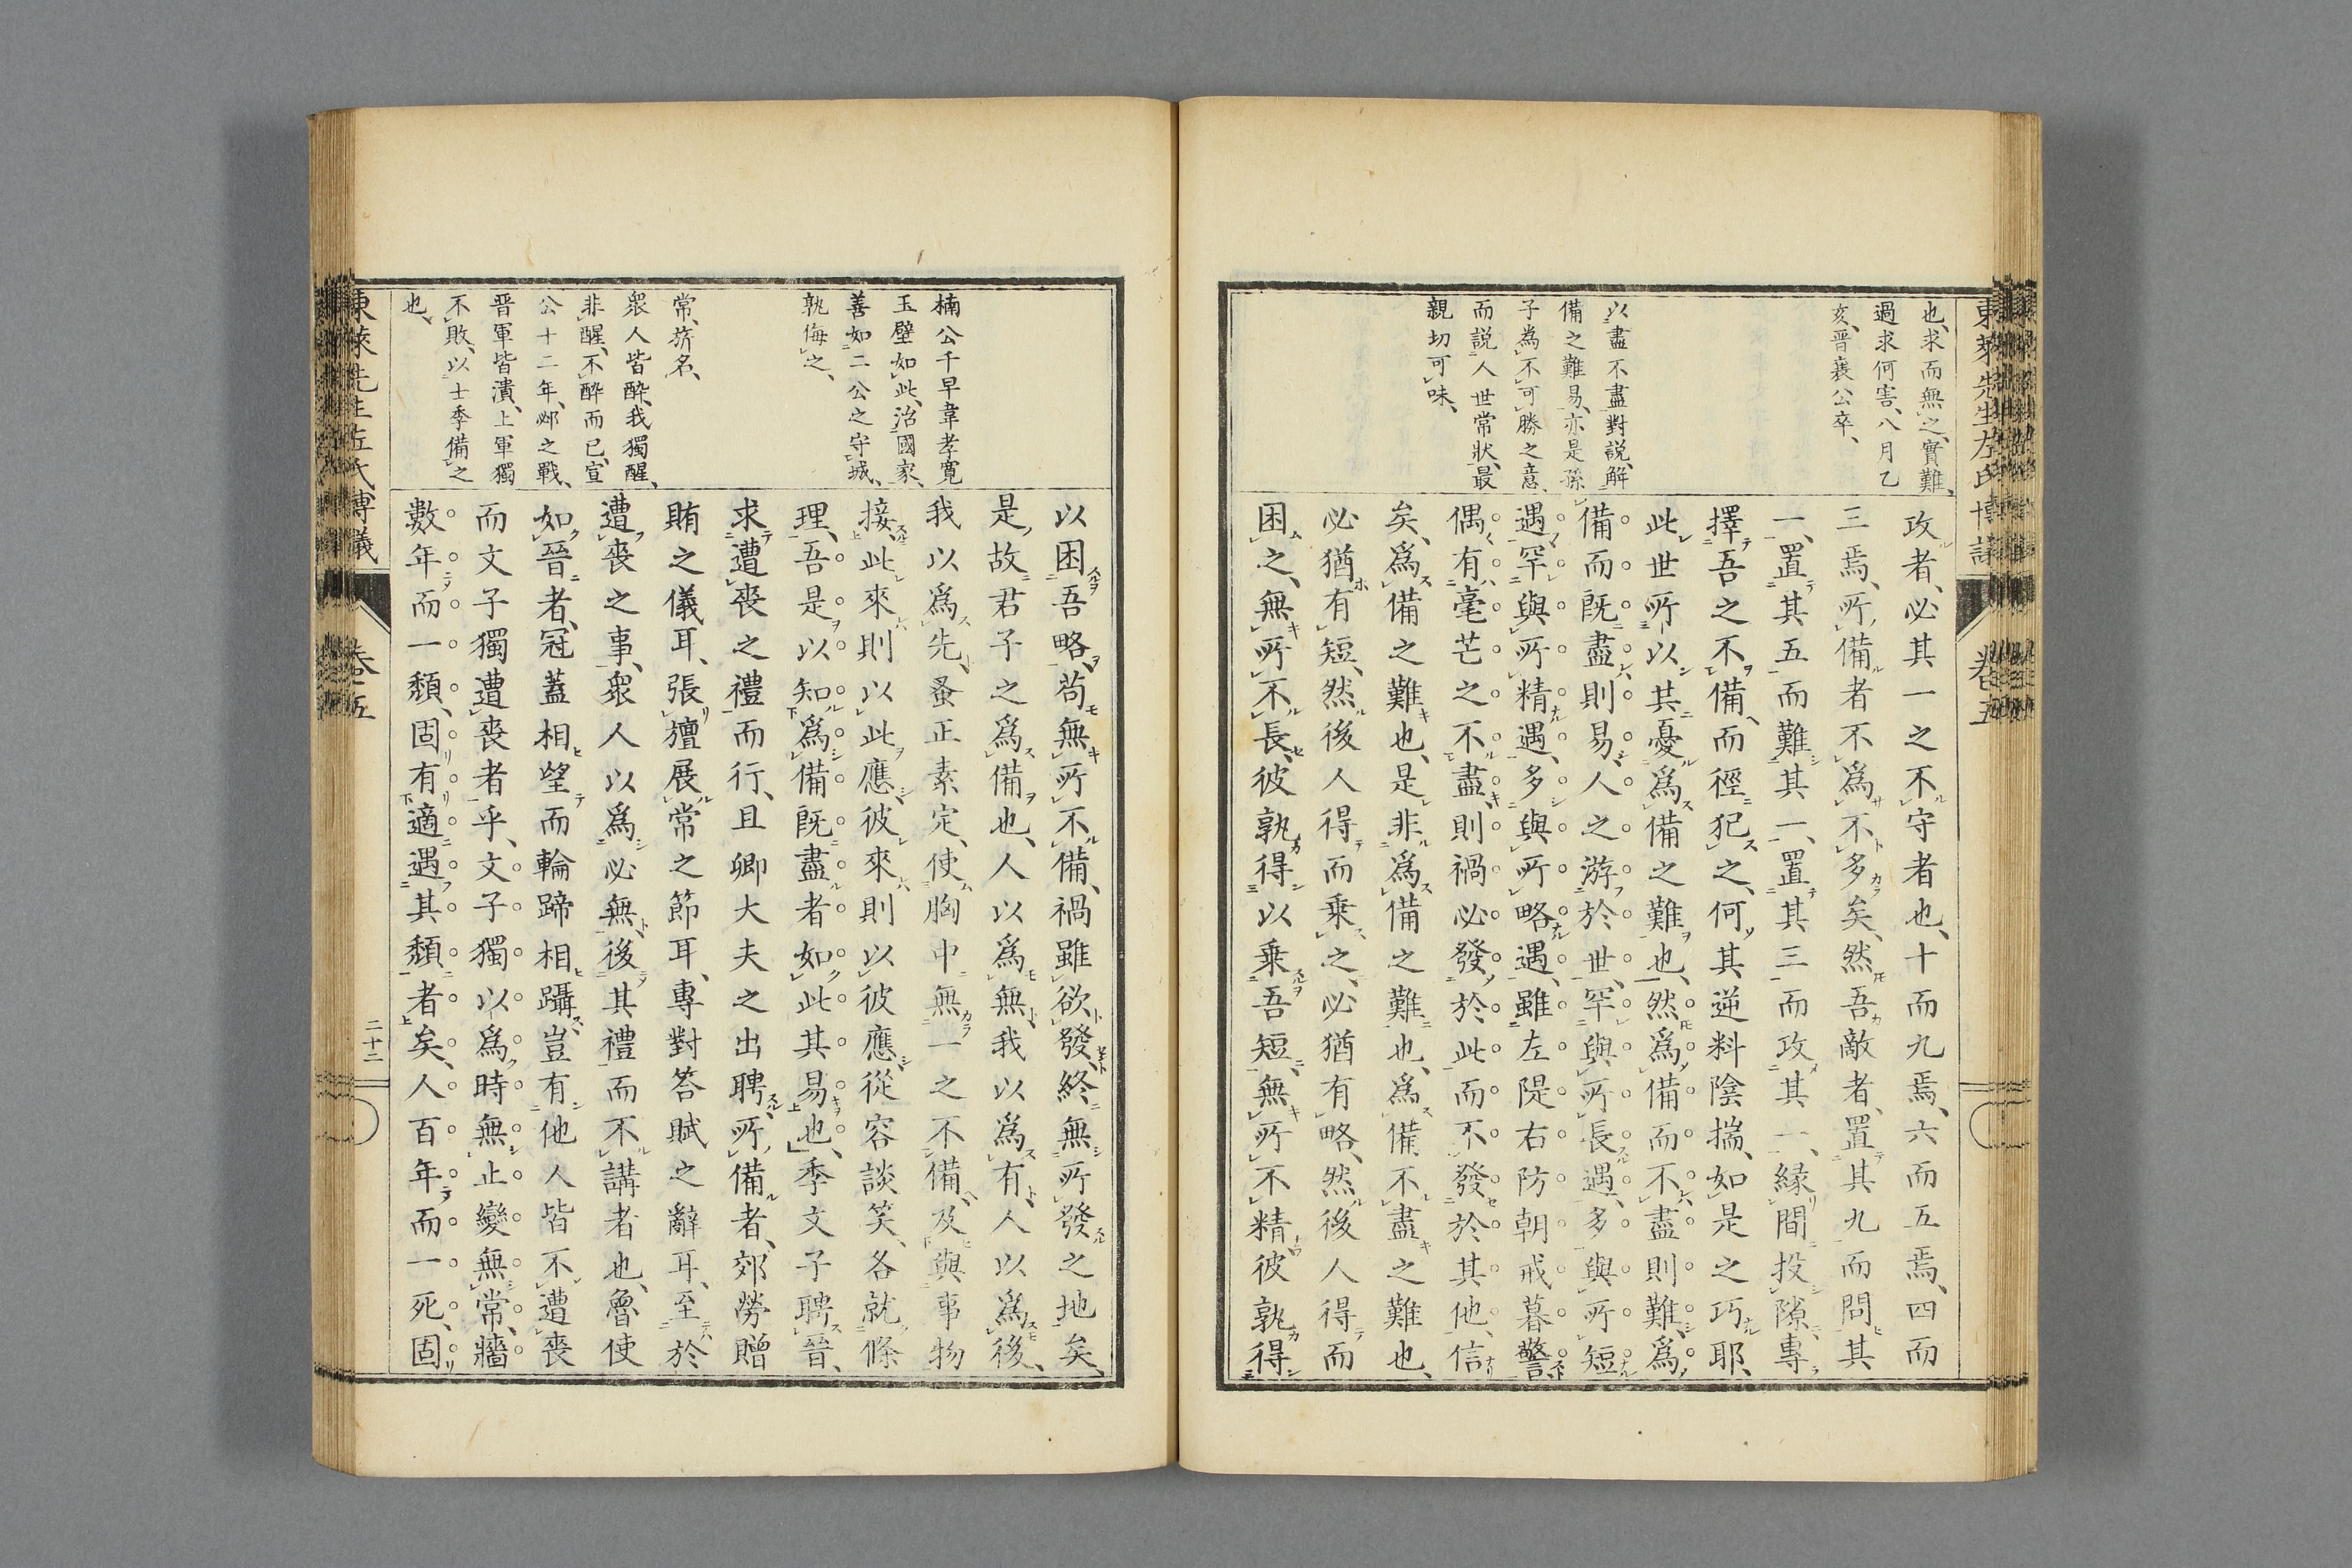 東萊先生左氏博議
卷五
也、求而無之、實難、
過求何害、八月乙
亥、晋襄公卒、
以盡不盡對説、解
備之難易、亦是孫
子為不可勝之意、
而説人世常狀、最
親切可味、
攻者、必其一之不守者也、十而九焉、六而五焉、四而
三焉、所備者不爲不多矣、然吾敵者、置其九而問其
一、置其五而難其一、置其三而攻其一、緣間投隙、專
擇吾之不備、而徑犯之、何其逆料陰揣、如是之巧耶、
此世所以其憂爲備之難也、然爲備而不盡則難、爲
備而既盡則易、人之游於世、罕與所長遇、多與所短
遇、罕與所精遇、多與所略遇、雖左隄右防朝戒暮警、
偶有毫芒之不盡、則禍必發於此而不發於其他、信
矣、爲備之難也、是非爲備之難也、爲備不盡之難也、
必猶有短、然後人得而乗之、必猶有略、然後人得而
困之、無所不長、彼孰得以乗吾短、無所不精彼孰得
以困吾略、苟無所不備、禍雖欲發、終無所發之地矣、
是故君子之爲備也、人以爲無我以爲有、人以爲後、
我以爲先、蚤正素定、使胸中無一之不備、及與事物
接、此來則以此應、彼來則以彼應、從容談笑、各就條
理、吾是以知爲備既盡者如此其易也、季文子聘晉、
求遭喪之禮而行、且卿大夫之出聘、所備者、郊勞贈
賄之儀耳、張旜展常之節耳、專對答賦之辭耳、至於
遭喪之事、衆人以爲必無、後其禮而不講者也、魯使
如晉者、冠蓋相望而輪蹄相躡、豈有他人皆不遭喪
而文子獨遭喪者乎、文子獨以爲時無止變無常、牆
數年而一頽、固有適遇其頽者矣、人百年而一死、固
楠公千早韋孝寬
玉壁如此、治國家、
善如二公之守城、
孰侮之、
常、旂名、
衆人皆醉、我獨醒、
非醒、不醉而已、宣
公十二年、邲之戰、
晋軍皆潰、上軍獨
不敗、以士季備之
也、
東萊先生左氏博議
卷五
二十二